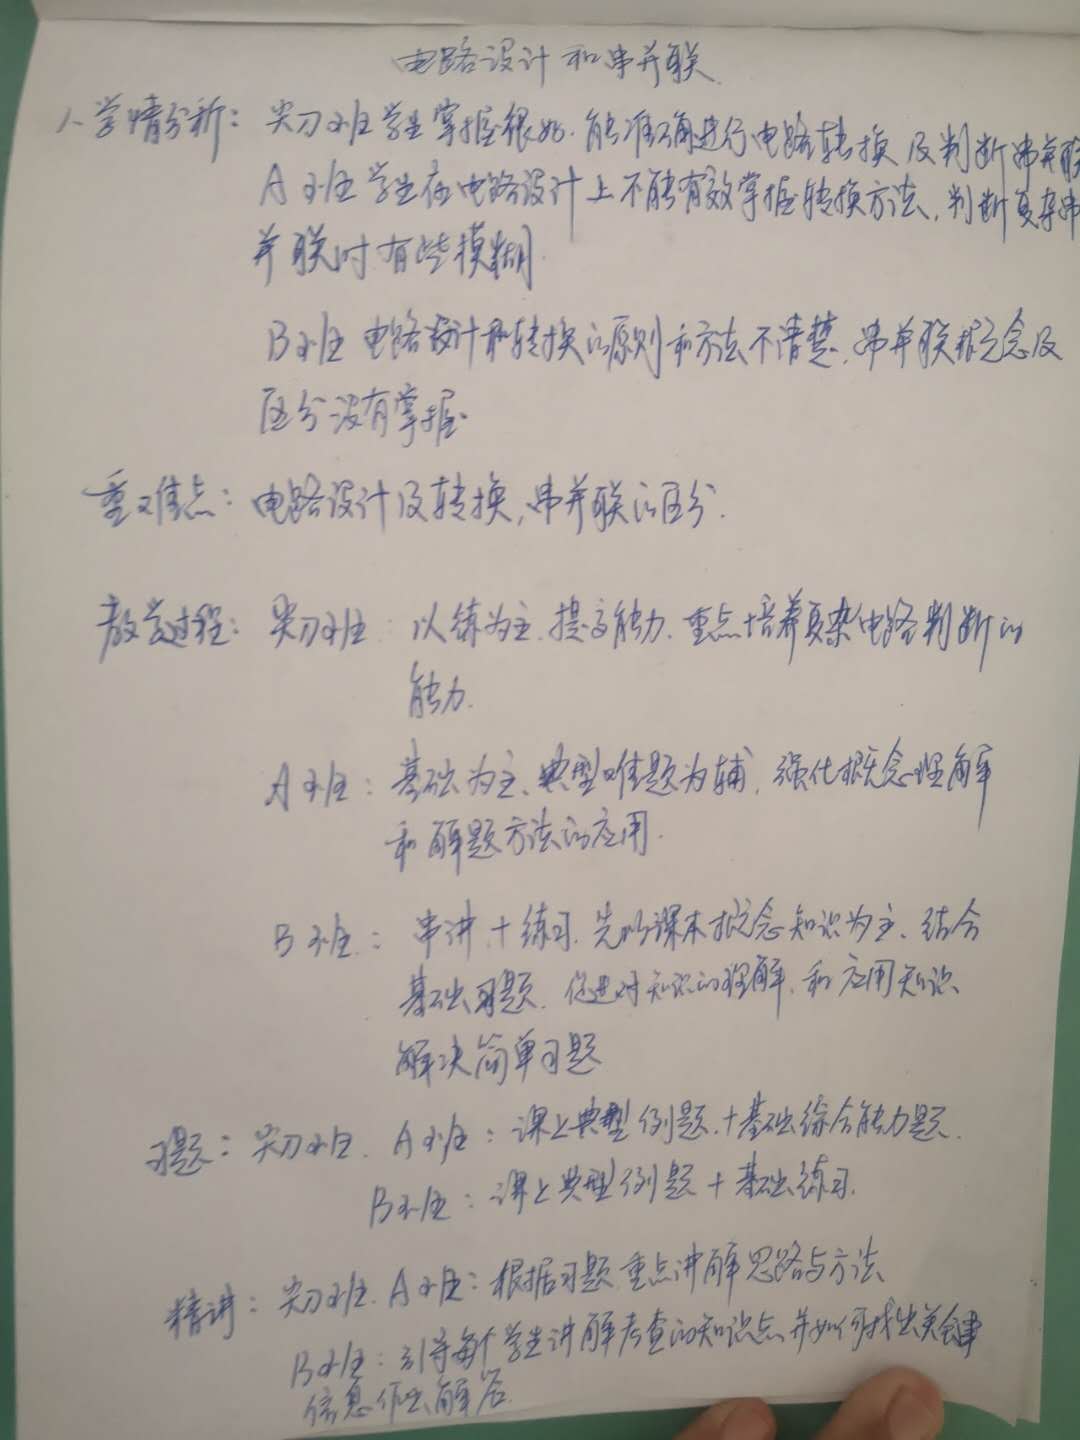 电路设计和串并联
1、学情分析：尖刀班学生掌握很好，能准确进行电路转换及判断串并联
A班学生在电路设计上不能有效掌握转换方法，判断复杂串
并联时有些模糊
B班电路设计和转换的原则和方法不清楚，串并联概念及
区分没有掌握
重难点：电路设计及转换，串并联的区分.
教学过程：尖刀班：以练为主，提高能力，重点培养复杂电路判断的
能力.
A班：基础为主、典型难题为辅，强化概念理解
和解题方法的应用.
B班：串讲+练习，先以课本概念知识为主、结合
基础习题，促进对知识的理解，和应用知识
解决简单习题
习题：尖刀班、A班：课上典型例题+基础综合能力题.
B班：课上典型例题+基础练习.
精讲：尖刀班、A班：根据习题重点讲解思路与方法
B班：引导每个学生讲解考查的知识点并如何找出关键
信息作出解答.